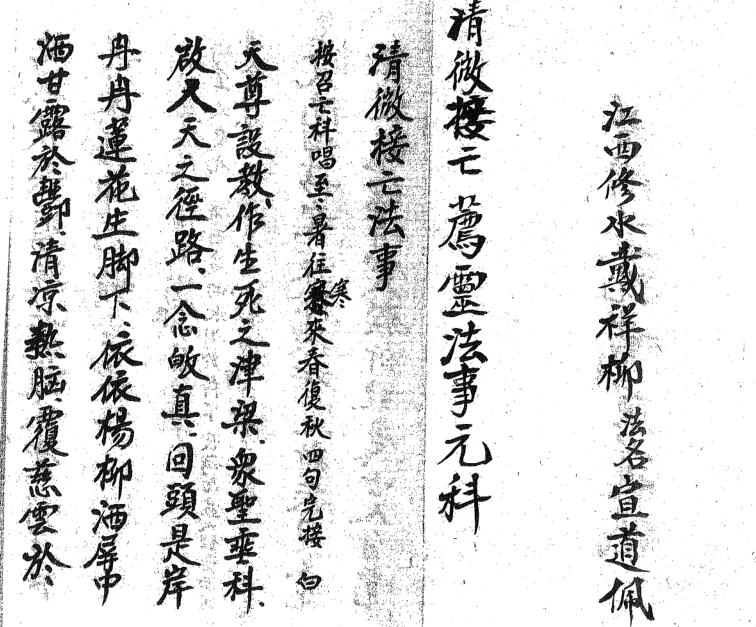 江西修水戴祥柳 法名宣道佩
清微接亡薦靈法事元科
清微接亡法事
按召亡科唱至、暑往寒來春復秋 四句完接 白
天尊設教、作生死之津梁、衆聖垂科、
啟人天之徑路、一念皈真、回頭是岸
冉冉蓮花生脚下、依依楊柳洒屏中
洒甘露於、清凉熱脑、覆慈雲於